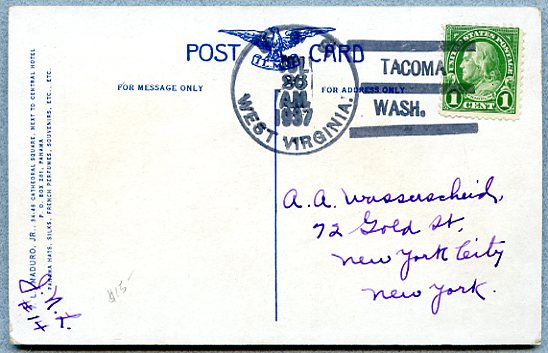 POST CARD
FOR MESSAGE ONLY
FOR ADDRESS ONLY
AM
1937
WEST VIRGINIA.
TACOMA
WASH.
UNITED STATES POSTAGE
1 CENT 1
A. A. Wasserscheid,
72 Gold St.
New York City
New York.
L. MADURO, JR., 34-48 CATHEDRAL SQUARE, NEXT TO CENTRAL HOTEL
P. O. BOX 251, PANAMA
PANAMA HATS, SILKS, FRENCH PERFUMES, SOUVENIRS, ETC., ETC.
$15-